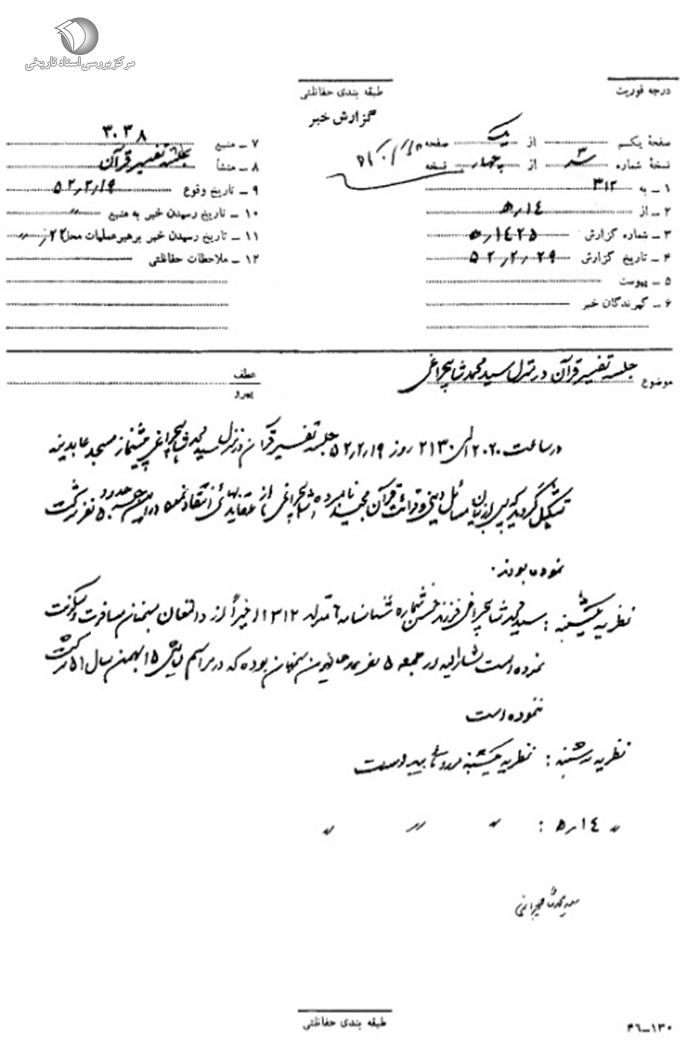 مرکز بررسی اسناد تاریخی
درجه فوریت
طبقه بندی حفاظتی
گزارش خبر
صفحهٔ یکم از یک صفحه
نسخهٔ شماره ۳ از چهار نسخه
۱ ـ به ۳۱۲
۲ ـ از ۱۴/ﻫ
۳ ـ شماره گزارش ۱۴۲۵/ﻫ
۴ ـ تاریخ گزارش ۵۲٫۲٫۲۹
۵ ـ پیوست
۶ ـ گیرندگان خبر
۷ ـ منبع ۳۰۳۸
۸ ـ منشأ جلسه تفسیر قرآن
۹ ـ تاریخ وقوع ۵۲٫۲٫۱۹
۱۰ ـ تاریخ رسیدن خبر به منبع "
۱۱ ـ تاریخ رسیدن خبر برهبر عملیات محل
۱۲ ـ ملاحظات حفاظتی
موضوع جلسه تفسیر قرآن در منزل سید محمد شاهچراغی
عطف
پیرو
در ساعت ۲۰۲۰ الی ۲۱۳۰ روز ۵۲٫۲٫۱۹ جلسه تفسیر قرآن در منزل سید محمد شاهچراغی پیشنماز مسجد عابدینه
تشکیل گردید که پس از بیان مسائل دینی و قرائت قرآن مجید نامبرده شاهچراغی از انتقاد نموده در این حدود ۵۰ نفر شرکت
نموده بودند.
نظریه یکشنبه : سید محمد شاهچراغی فرزند حسن شماره شناسنامه متولد ۱۳۱۲ اخیراً از دامغان بسمنان مسافرت و سکونت
نموده است مشارالیه در جمعه ۵ نفر روحانیون سمنان بوده که در مراسم نیایش ۱۵ بهمن سال ۵۱ شرکت
ننموده است
نظریه سه‌شنبه : نظریه یکشنبه مورد تأیید است
" ۱۴/ﻫ : " " "
سید محمد شاهچراغی
طبقه بندی حفاظتی
۴۶ــ۱۳۰